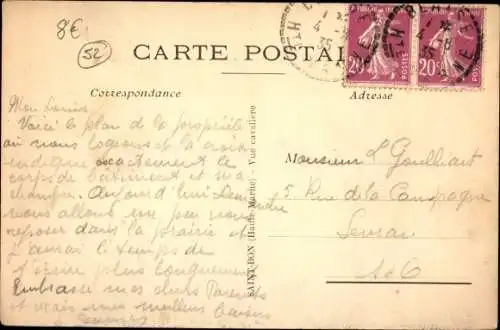 8€
52
CARTE POSTALE
20c POSTES
20c POSTES
Correspondance
Adresse
Mon Louis
Voici le plan de la propriété
où nous logeons et la croix
indique exactement le
corps de bâtiment et ma
chambre. Aujourd'hui
nous allons un peu nous
reposer dans la prairie et
j'aurai le temps de
t'écrire plus longuement
Embrasse mes chers Parents
et mes meilleurs baisers
SAINT-BON (Haute-Marne) — Vue cavalière
Monsieur L Goulliart
5 Rue de la Campagne
Sevran
S&O